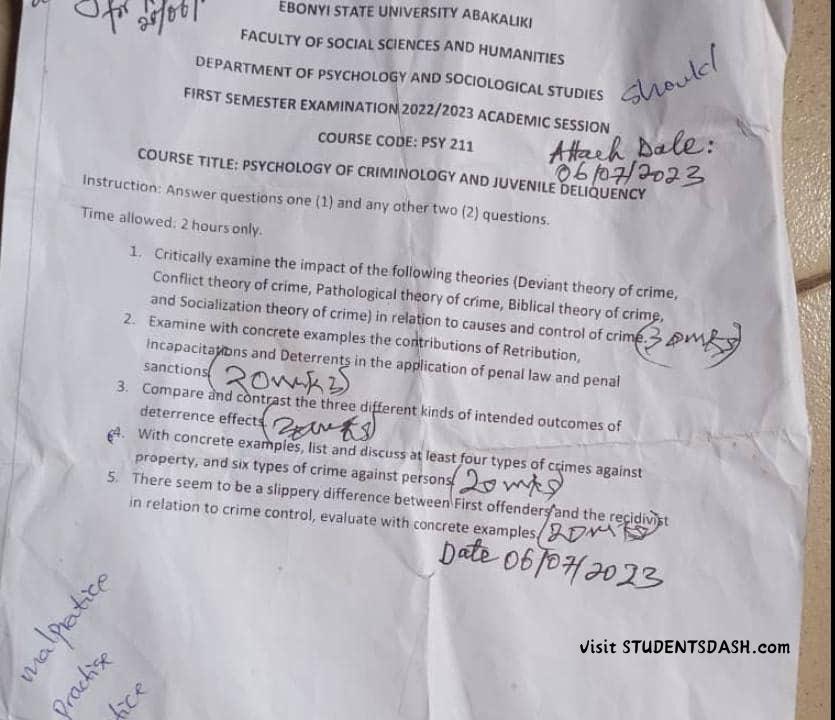 for
28/06/
EBONYI STATE UNIVERSITY ABAKALIKI
FACULTY OF SOCIAL SCIENCES AND HUMANITIES
DEPARTMENT OF PSYCHOLOGY AND SOCIOLOGICAL STUDIES
should
FIRST SEMESTER EXAMINATION 2022/2023 ACADEMIC SESSION
COURSE CODE: PSY 211
Attach Date:
06/07/2023
COURSE TITLE: PSYCHOLOGY OF CRIMINOLOGY AND JUVENILE DELIQUENCY
Instruction: Answer questions one (1) and any other two (2) questions.
Time allowed: 2 hours only.
1. Critically examine the impact of the following theories (Deviant theory of crime,
Conflict theory of crime, Pathological theory of crime, Biblical theory of crime,
and Socialization theory of crime) in relation to causes and control of crime. (30mks)
2. Examine with concrete examples the contributions of Retribution,
Incapacitations and Deterrents in the application of penal law and penal
sanctions (20mks)
3. Compare and contrast the three different kinds of intended outcomes of
deterrence effects (20mks)
4. With concrete examples, list and discuss at least four types of crimes against
property, and six types of crime against persons (20mks)
5. There seem to be a slippery difference between First offenders and the recidivist
in relation to crime control, evaluate with concrete examples (20mks)
Date 06/07/2023
malpratice
Practise
tice
visit STUDENTSDASH.com